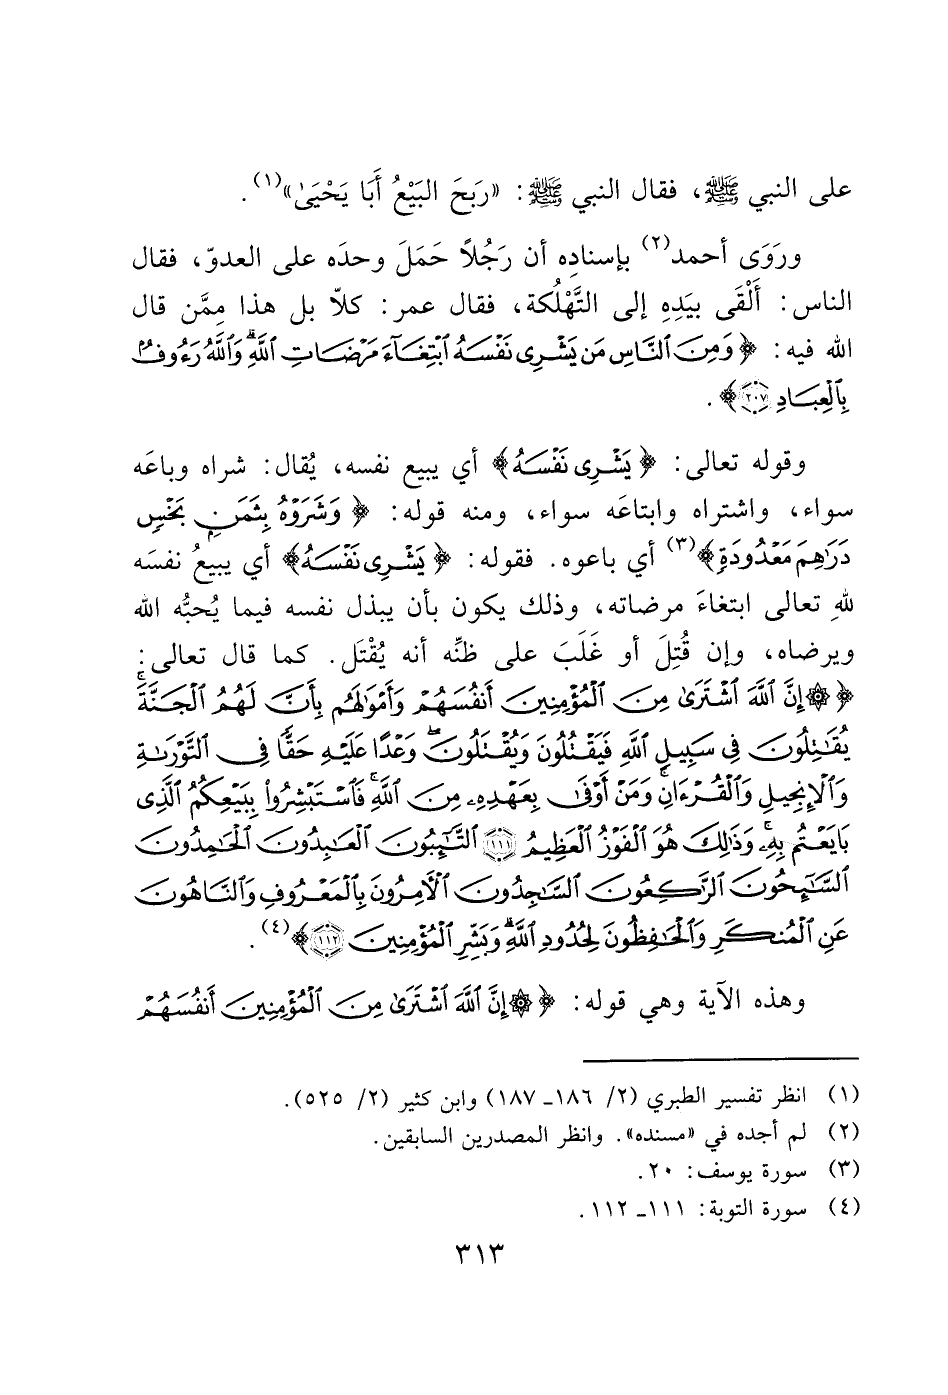 على النبي ﷺ، فقال النبي ﷺ: «رَبَحَ البَيْعُ أَبَا يَحْيَىٰ»(١).
ورَوَى أحمد(٢) بإسنادِه أن رَجُلاً حَمَلَ وحدَه على العدوّ، فقال
الناس: أَلْقَى بيَدِهِ إلى التَّهْلُكة، فقال عمر: كلاّ بل هذا مِمَّن قال
الله فيه: ﴿وَمِنَ النَّاسِ مَن يَشْرِى نَفْسَهُ ابْتِغَآءَ مَرْضَاتِ اللَّهِۗ وَاللَّهُ رَءُوفٌۢ
بِالْعِبَادِ ٢٠٧﴾.
وقوله تعالى: ﴿يَشْرِى نَفْسَهُ﴾ أي يبيع نفسه، يُقال: شراه وباعَه
سواء، واشتراه وابتاعَه سواء، ومنه قوله: ﴿وَشَرَوْهُ بِثَمَنٍۭ بَخْسٍ
دَرَٰهِمَ مَعْدُودَةٍ﴾(٣) أي باعوه. فقوله: ﴿يَشْرِى نَفْسَهُ﴾ أي يبيعُ نفسَه
للهِ تعالى ابتغاءَ مرضاته، وذلك يكون بأن يبذل نفسه فيما يُحبُّه الله
ويرضاه، وإن قُتِلَ أو غَلَبَ على ظنِّه أنه يُقْتَل. كما قال تعالى:
﴿۞إِنَّ اللَّهَ اشْتَرَىٰ مِنَ الْمُؤْمِنِينَ أَنفُسَهُمْ وَأَمْوَٰلَهُم بِأَنَّ لَهُمُ الْجَنَّةَۚ
يُقَٰتِلُونَ فِى سَبِيلِ اللَّهِ فَيَقْتُلُونَ وَيُقْتَلُونَۖ وَعْدًا عَلَيْهِ حَقًّا فِى التَّوْرَىٰةِ
وَالْإِنجِيلِ وَالْقُرْءَانِۚ وَمَنْ أَوْفَىٰ بِعَهْدِهِۦ مِنَ اللَّهِۚ فَاسْتَبْشِرُوا۟ بِبَيْعِكُمُ الَّذِى
بَايَعْتُم بِهِۦۚ وَذَٰلِكَ هُوَ الْفَوْزُ الْعَظِيمُ ١١١ التَّٰٓئِبُونَ الْعَٰبِدُونَ الْحَٰمِدُونَ
السَّٰٓئِحُونَ الرَّٰكِعُونَ السَّٰجِدُونَ الْأٓمِرُونَ بِالْمَعْرُوفِ وَالنَّاهُونَ
عَنِ الْمُنكَرِ وَالْحَٰفِظُونَ لِحُدُودِ اللَّهِۗ وَبَشِّرِ الْمُؤْمِنِينَ ١١٢﴾(٤).
وهذه الآية وهي قوله: ﴿۞إِنَّ اللَّهَ اشْتَرَىٰ مِنَ الْمُؤْمِنِينَ أَنفُسَهُمْ
(١) انظر تفسير الطبري (٢/ ١٨٦ـ ١٨٧) وابن كثير (٢/ ٥٢٥).
(٢) لم أجده في «مسنده». وانظر المصدرين السابقين.
(٣) سورة يوسف: ٢٠.
(٤) سورة التوبة: ١١١ـ ١١٢.
٣١٣